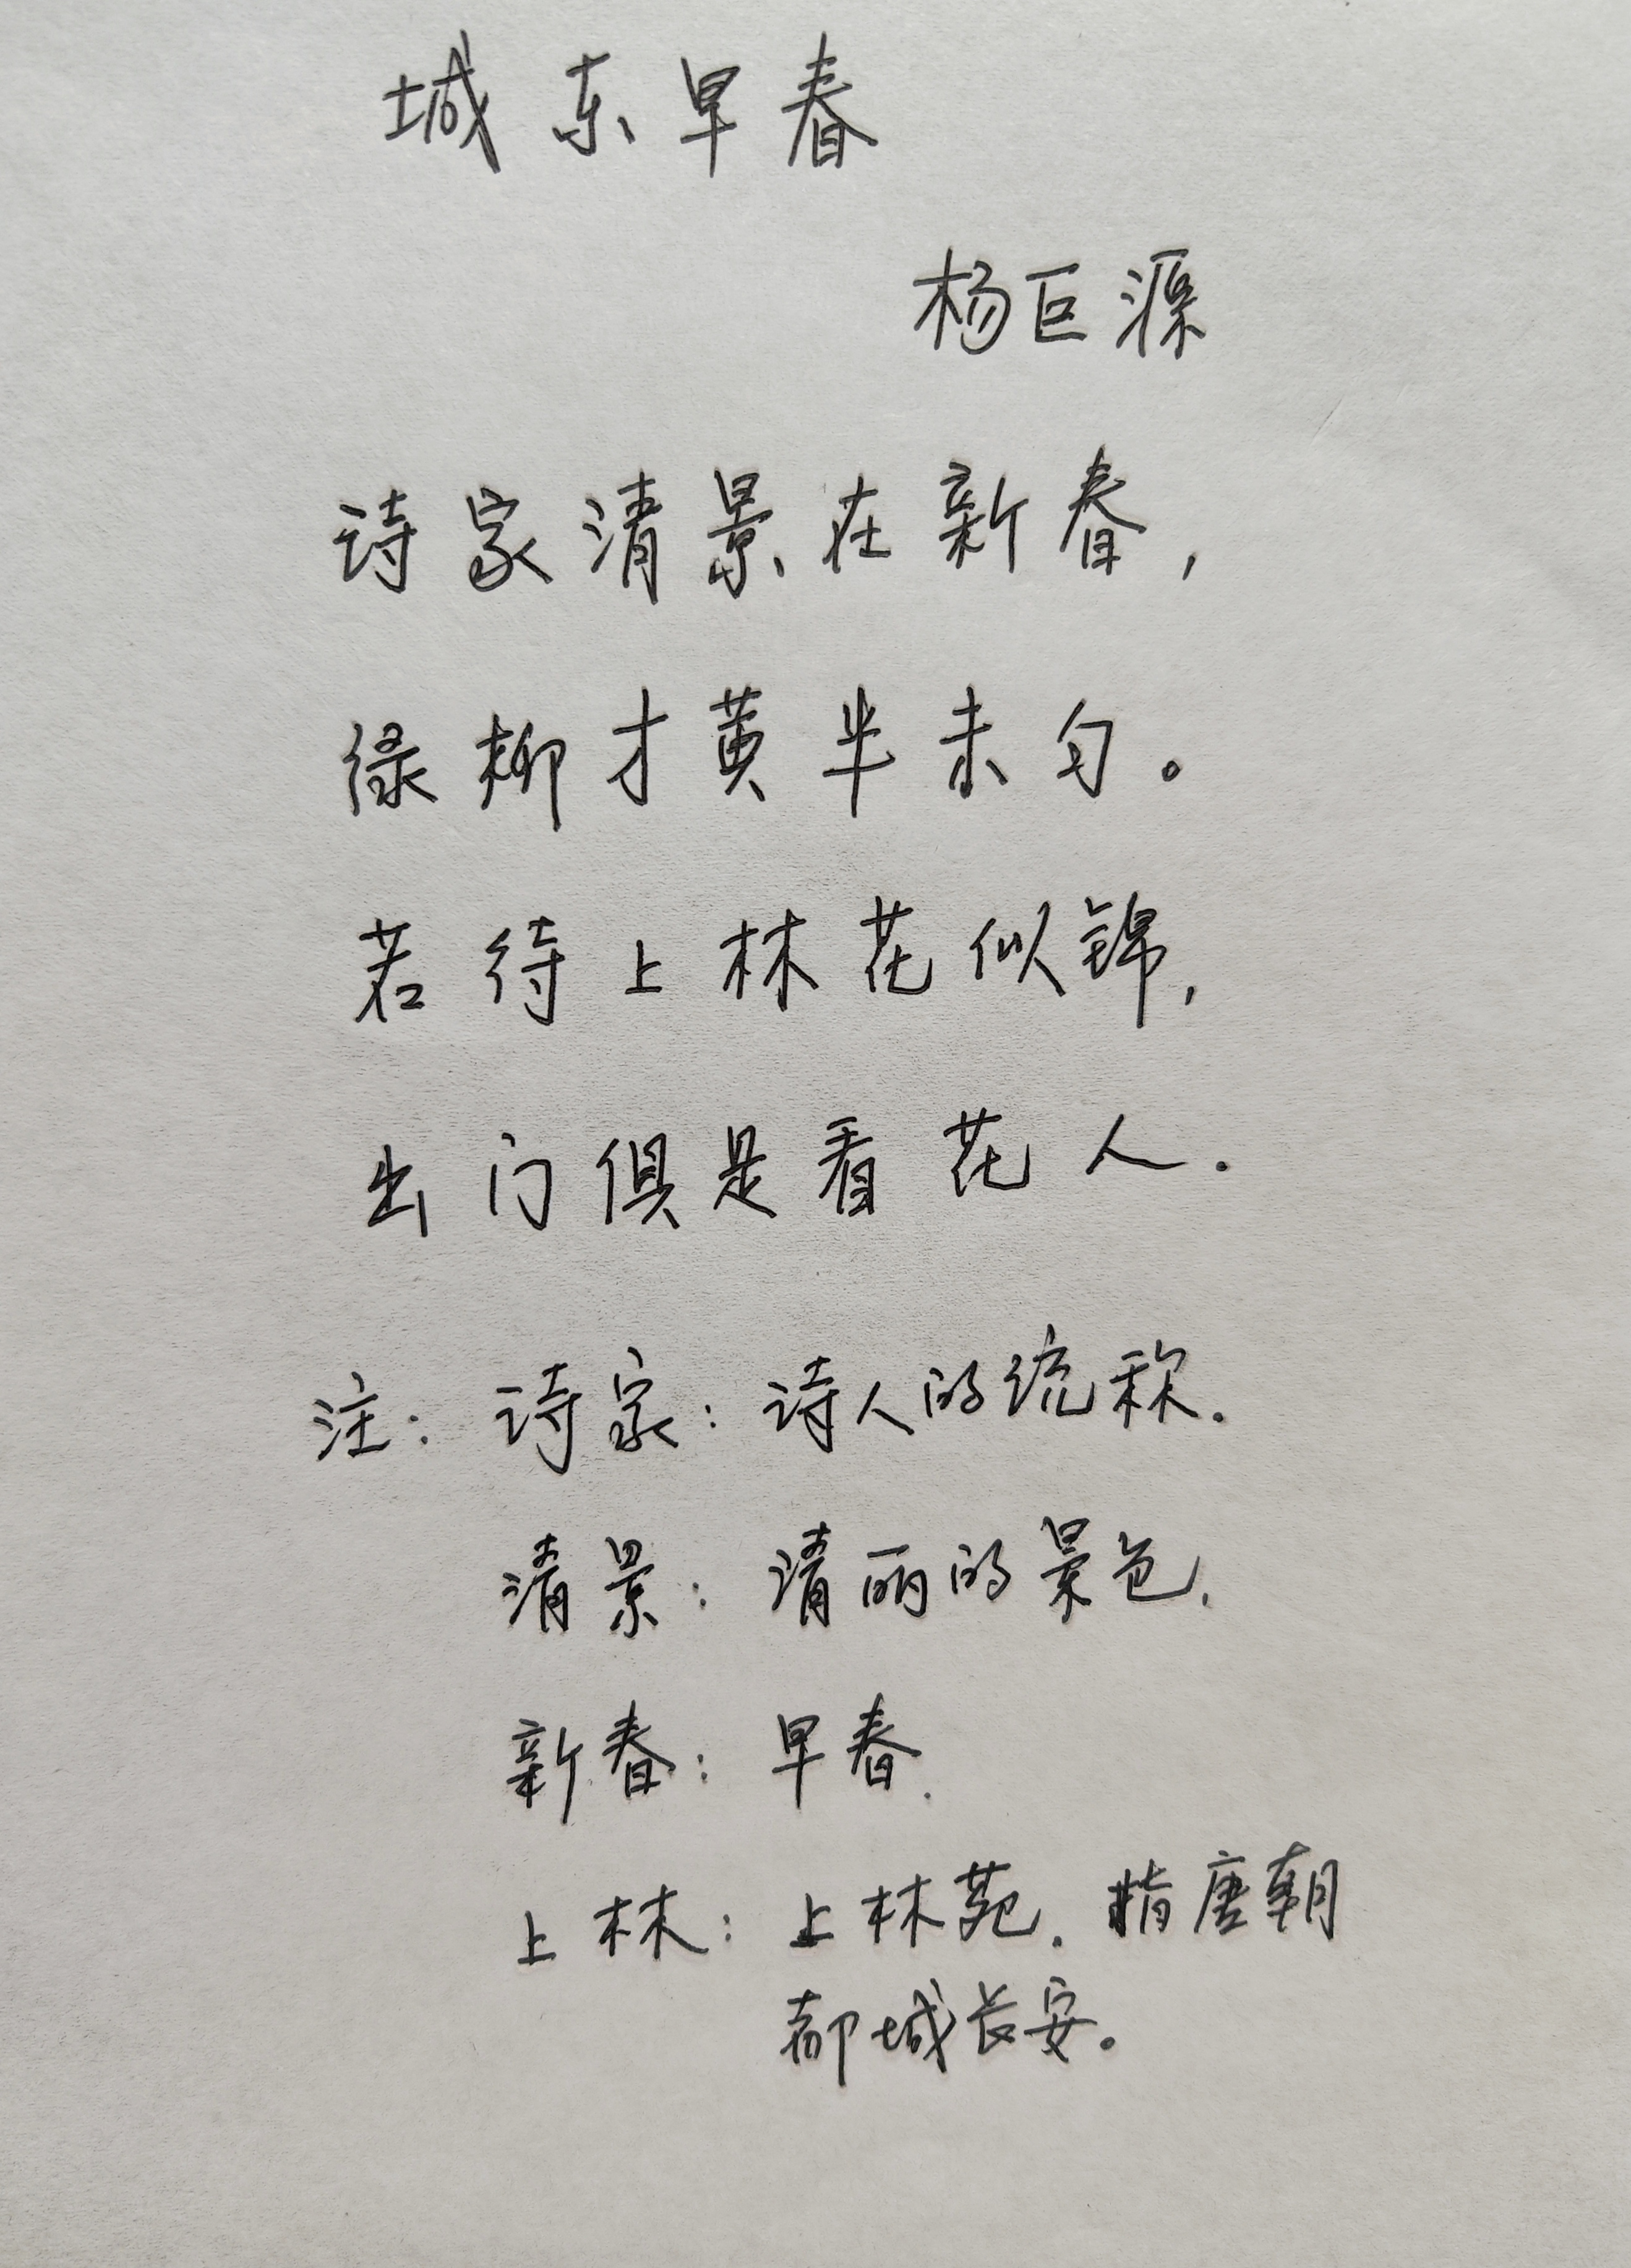 城东早春
杨巨源
诗家清景在新春，
绿柳才黄半未匀。
若待上林花似锦，
出门俱是看花人.
注：诗家：诗人的统称.
清景：清丽的景色.
新春：早春.
上林：上林苑.指唐朝
都城长安。